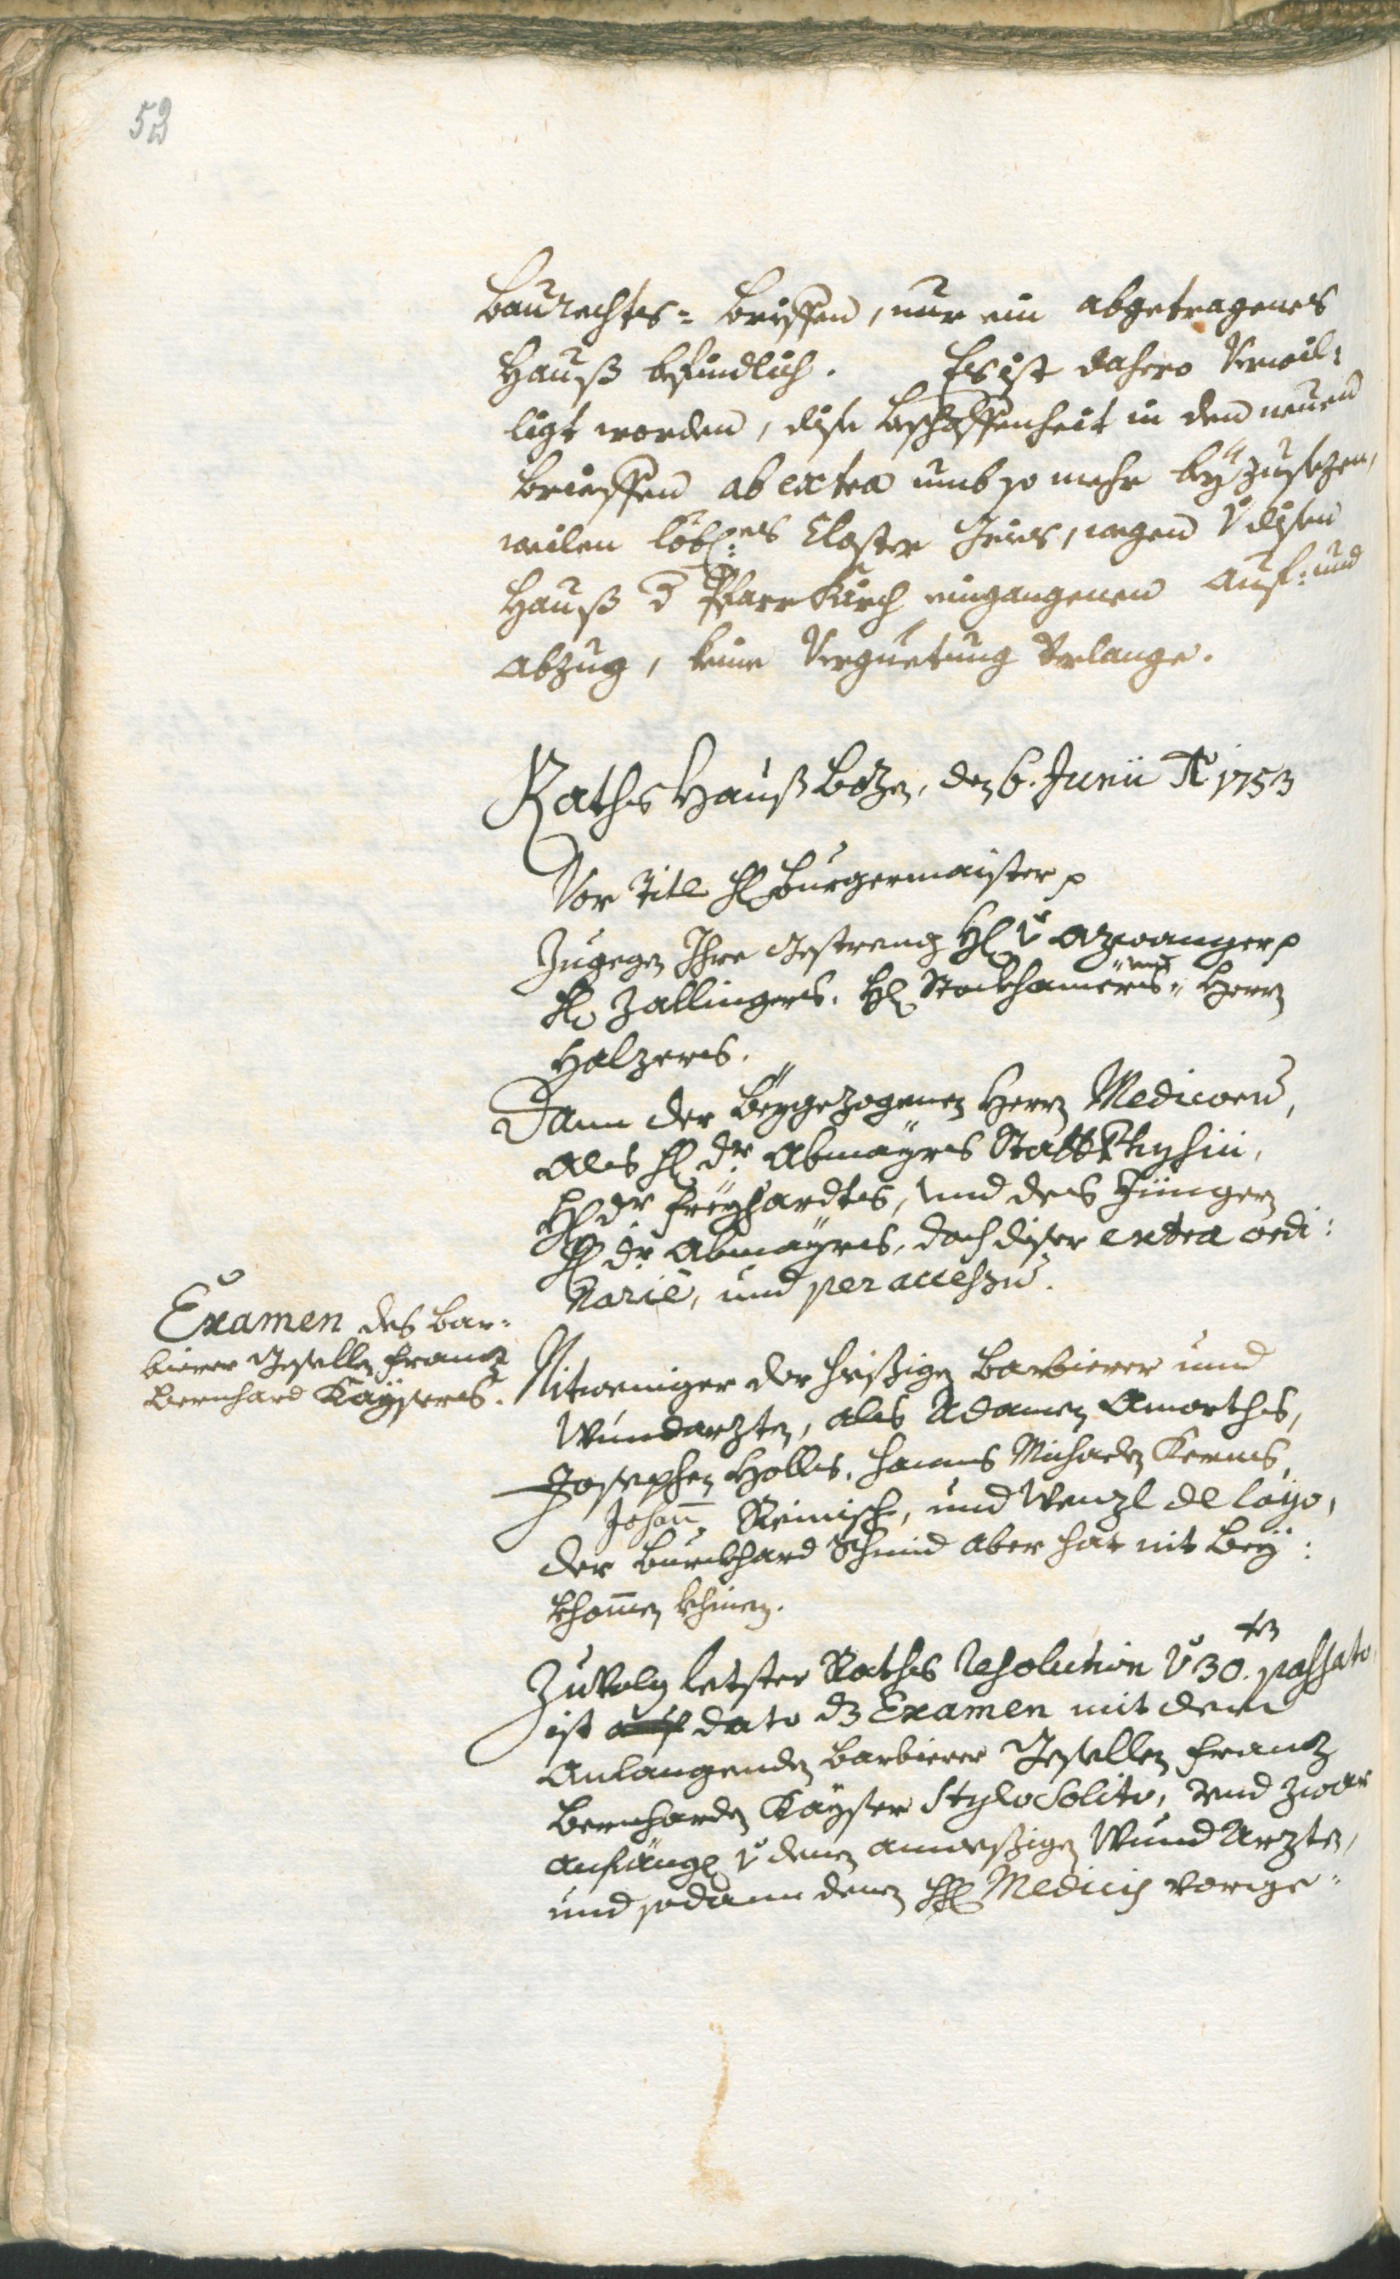 52
Baurechts- Brieffen, nur ein abgetragenes
Hauß befindlich. Es ist dahero Verwil-
ligt worden, dise Beschaffenheit in den neuen
Brieffen ab extra umb so mehr beÿzusezen,
weilen löbl:es Closter Gries, wegen v disen
Hauß d Pfarr Kirch eingangenen Auf- und
Abzug, keine Verguetung Verlange.
Raths Hauß Bozen, den 6. Junii Ao 1753
Vor Titl H Burgermaister p
Zugegen Ihre Gestreng H v Azwanger p
H Zallingers. H Stockhamers und Herrn
Holzers.
Dann der beÿgezogenen Herrn Medicorum,
als H Dr Abmaÿrs Statt Physici,
H Dr Freÿhardts, und des Jüngern
H Dr Abmaÿrs, doch diser extra ordi:
narie, und per accessum.
Examen des Bar-
bierer Gesellen Frantz
Bernhard Kaÿsers.
Nitweniger der hießigen Barbierer und
Wundarzten, als Adamen Amorths,
Josephen Holls, Hanns Michaelen Kerns,
Johann Reinisch, und Wenzl de Layo,
der Burckhard Schmid aber hat nit beÿ:
khomen khinen.
Zuvolg letster Raths Resolution v 30.ten passato,
ist auf dato dz Examen mit dem
Anlangenden Barbierer Gesellen Frantz
Bernharden Kaÿser Stylo Solito, und zwar
anfängl v denen anweßigen Wund Arzten,
und sodann denen HH Medicis vorge-